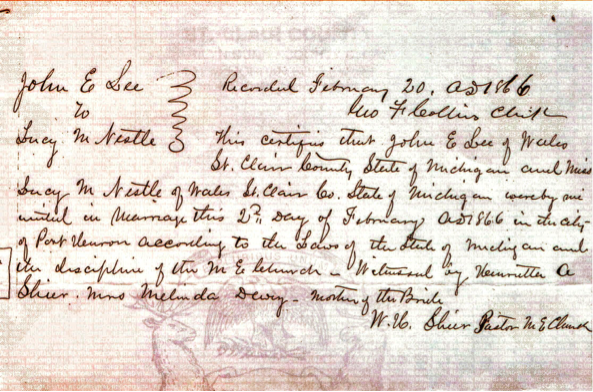 ST. CLAIR COUNTY
John E Lee Recorded February 20, AD 1866
to Geo F Collins Clerk
Lucy M Nestle This certifies that John E Lee of Wales
St. Clair County State of Michigan and Miss
Lucy M Nestle of Wales St. Clair Co. State of Michigan were by me
united in Marriage this 2d, Day of February AD 1866 in the city
of Port Huron according to the Laws of the State of Michigan and
the discipline of the M E Church - Witnessed by Henrietta A
Shier. Mrs Melinda Dewy - Mother of the Bride
W. H. Shier Pastor M E Church